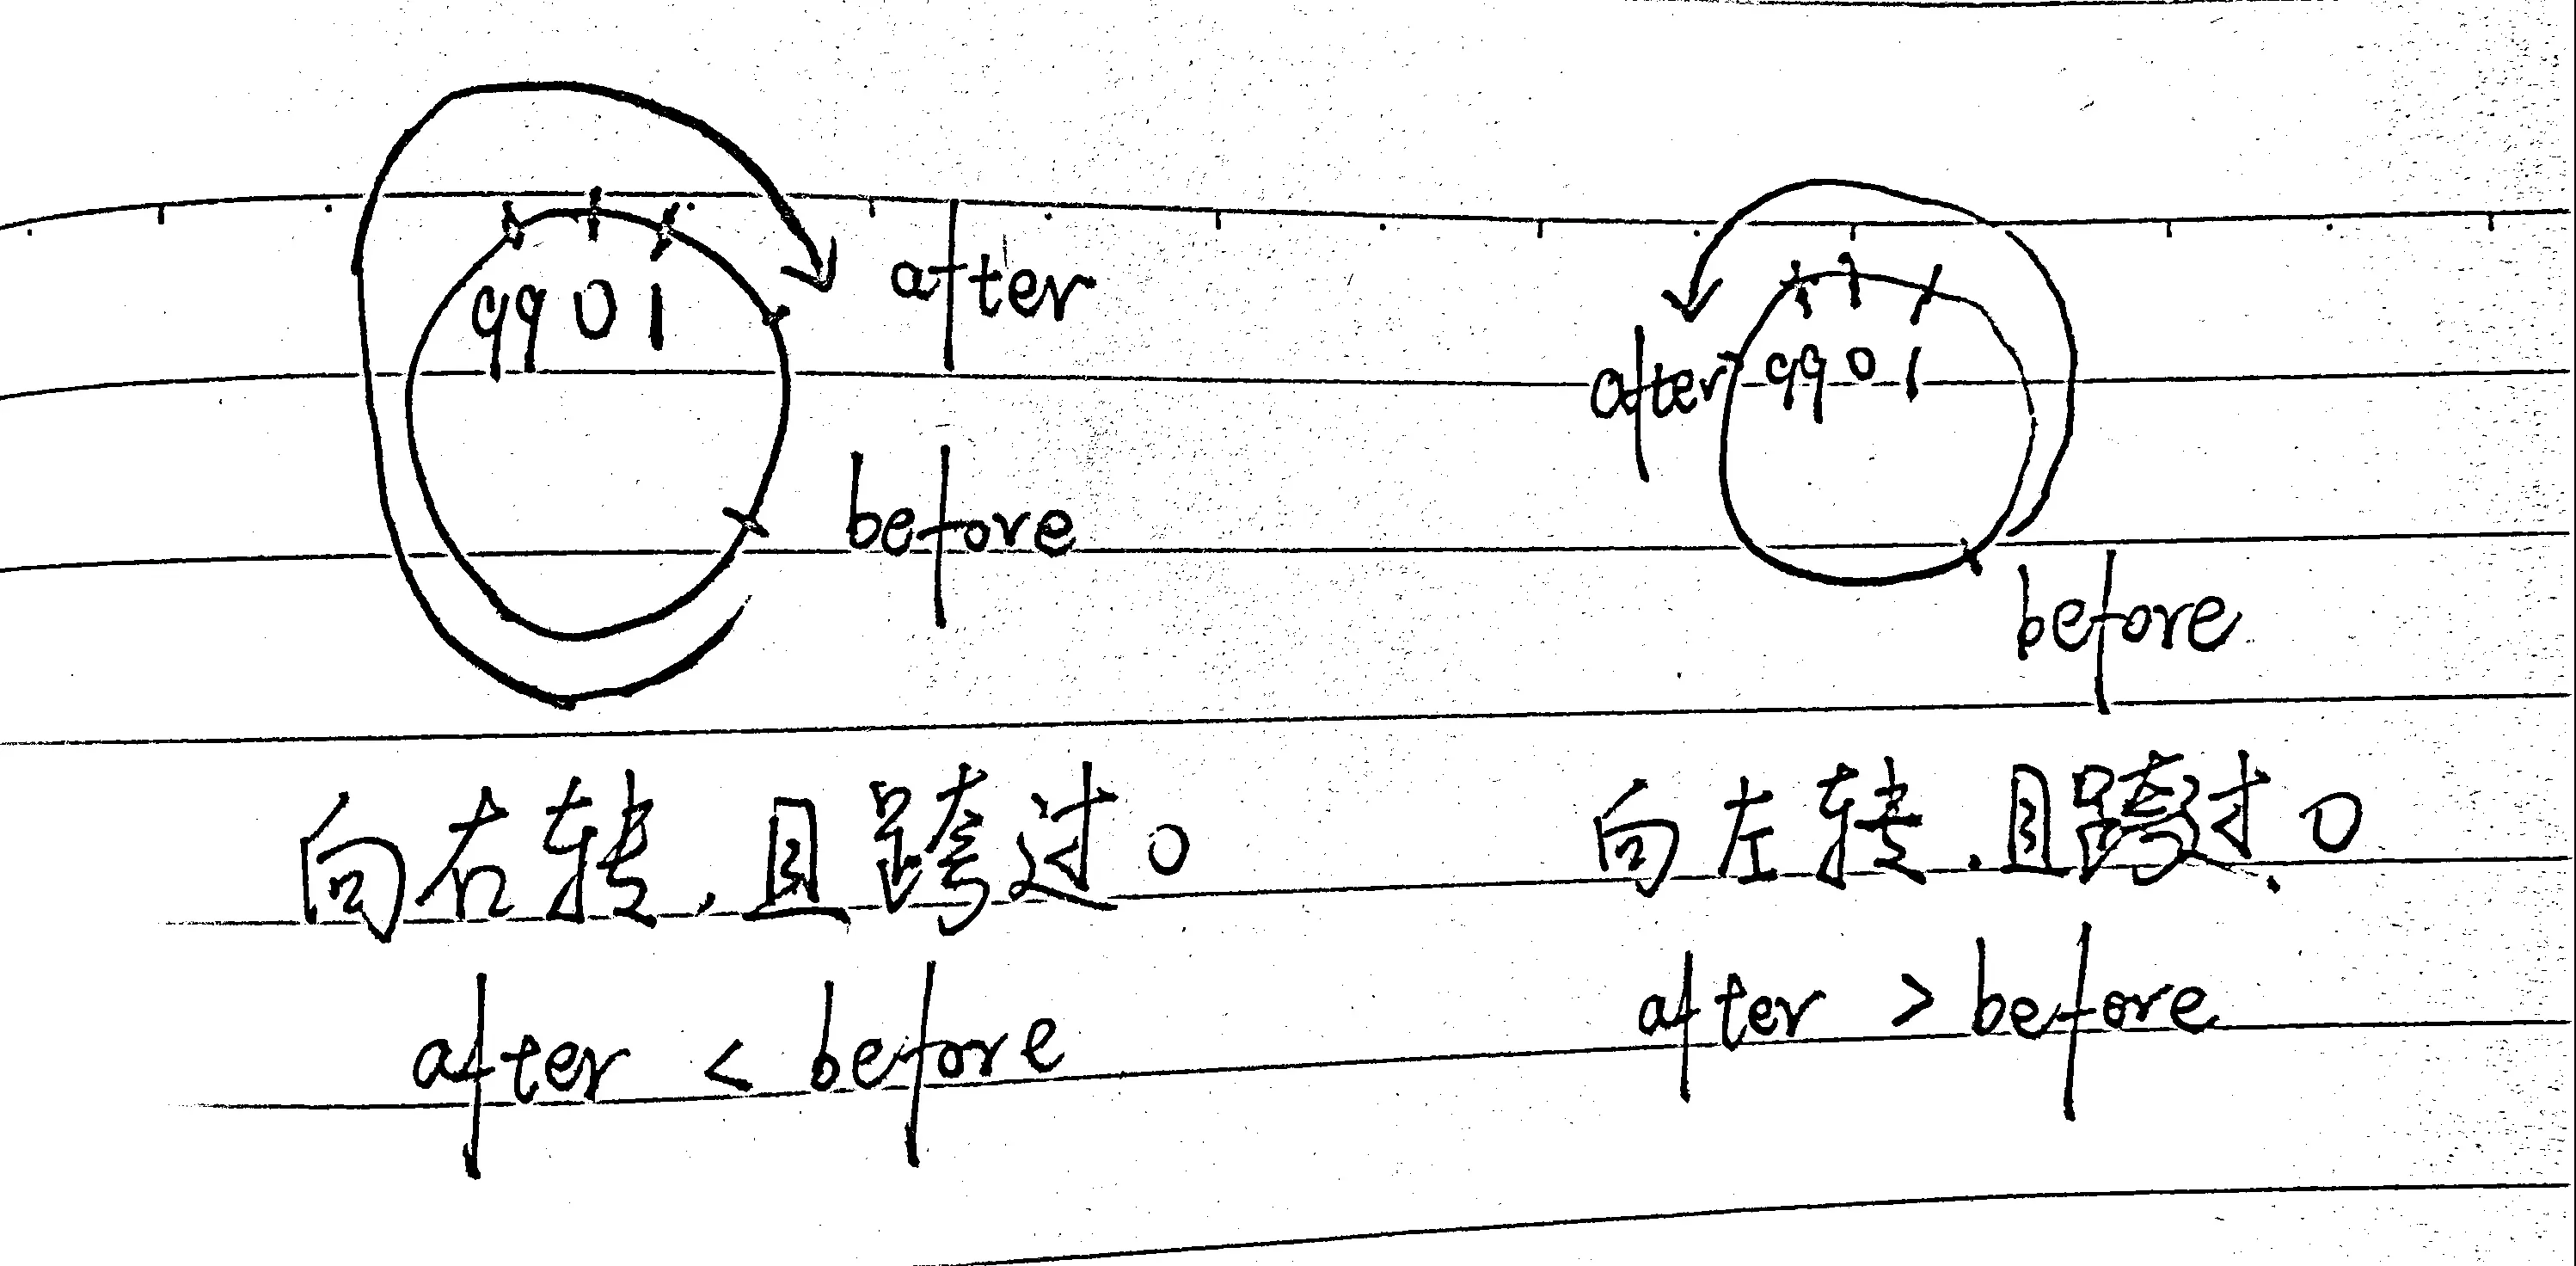 99 0 1
after
before
向右转,且跨过0
after < before
after 99 0 1
before
向左转,且跨过0
after > before